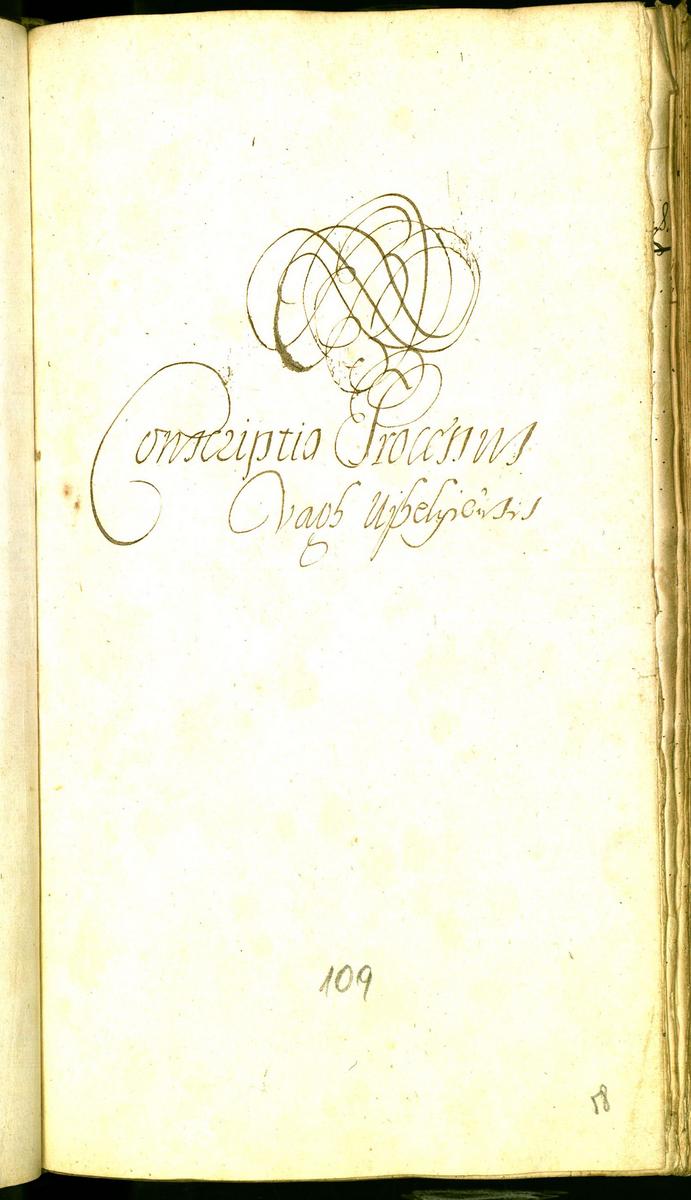 Conscriptio Processus
Vagh Ujhelyiensis
109
58